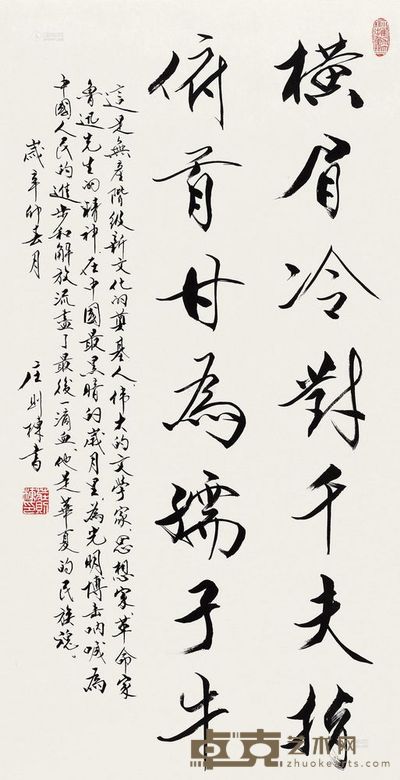 橫眉冷對千夫指
俯首甘為孺子牛
這是無產階級新文化的奠基人偉大的文學家、思想家、革命家
魯迅先生的精神。在中國最黑暗的歲月里、為光明博击呐喊為
中國人民的進步和解放流盡了最後一滴血、他是華夏的民族魂。
歲辛卯春月
庄则棟書
卓克艺术网
zhuokearts.com